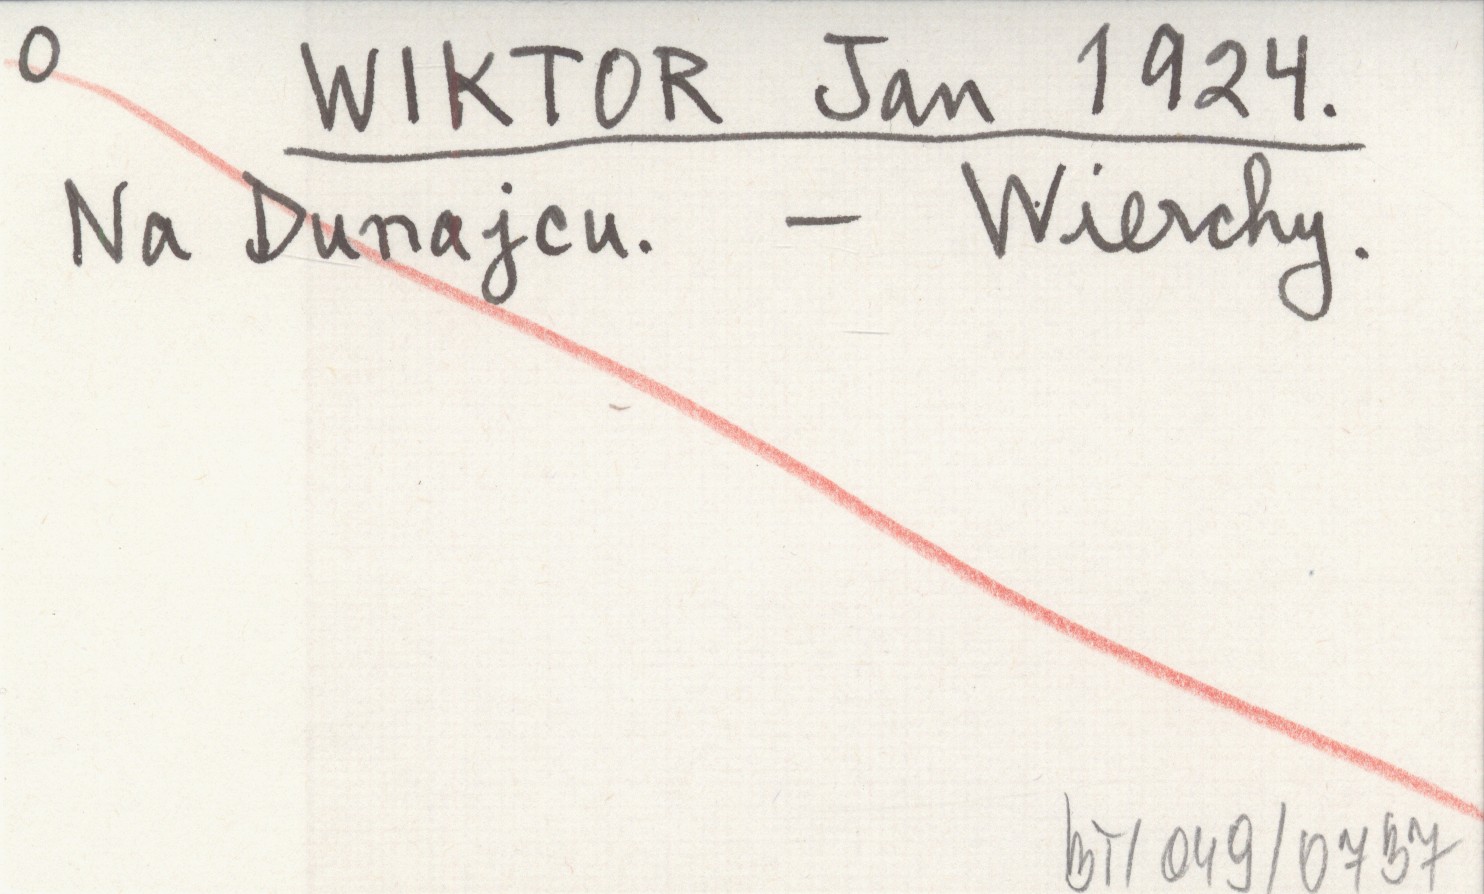 O WIKTOR Jan 1924.
Na Dunajcu. – Wierchy.
bT/ 049/0737